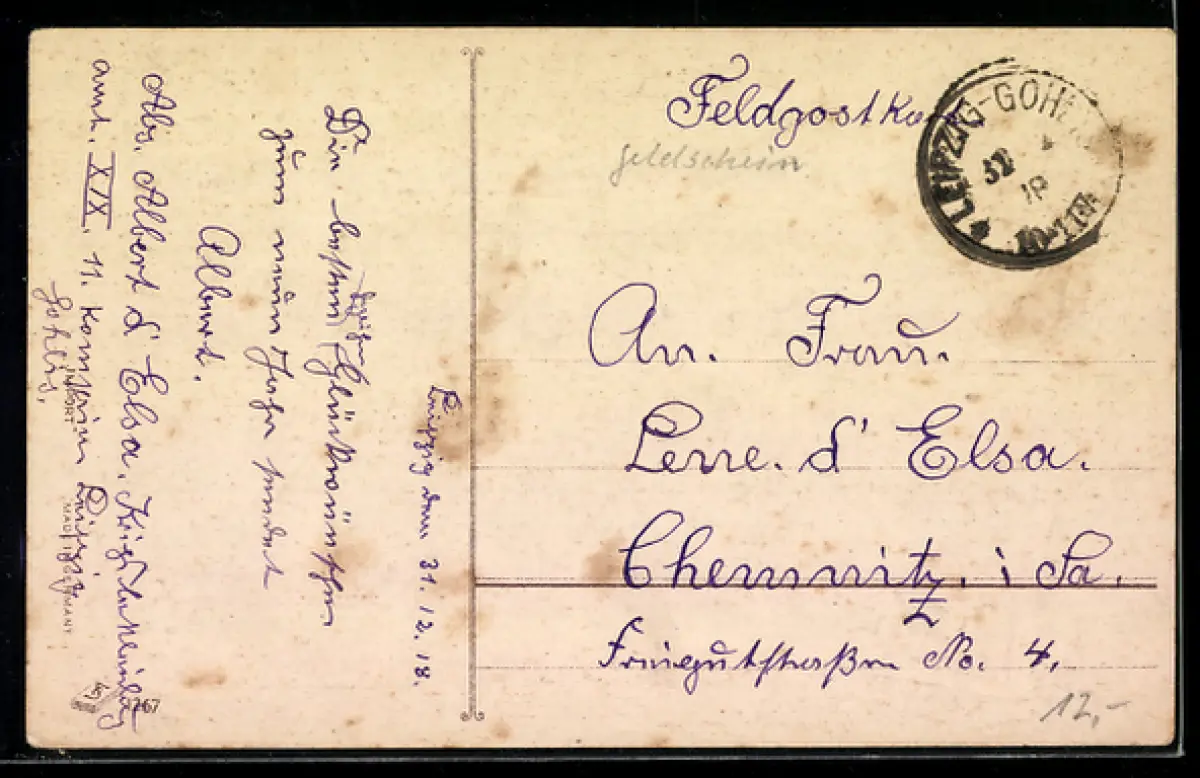 Feldpostkarte
Geldschein
LEIPZIG-GOHLIS
31
18
10-11
An. Frau.
Lerre. d' Elsa.
Chemnitz. i Sa.
Freigutstraßen No. 4.
12,-
Leipzig den 31. 12. 18.
Die besten Glückwünsche
zum neuen Jahr sendet
Albert.
Abs. Albert d' Elsa.
amt. XIX. 11. Leipzig
Gohlis,
IMPORT
267